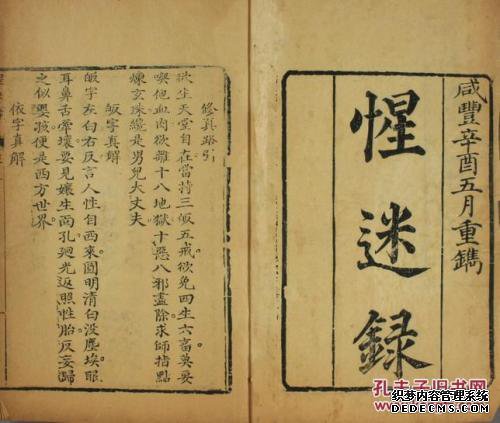 咸豐辛酉五月重鐫
惺迷録
修真路引
欲生天堂自在當持三皈五戒欲免四生六畜莫要
喫他血肉欲離十八地獄十惡八邪盡除求師指點
煉玄珠纔是男兒大丈夫
皈字真解
皈字左白右反言人性自西來圓明清白没塵埃眼
耳鼻舌牽壞要見孃生面孔廻光返照性胎反妄歸
之似嬰孩便是西方世界
依字真解
孔夫子旧书网